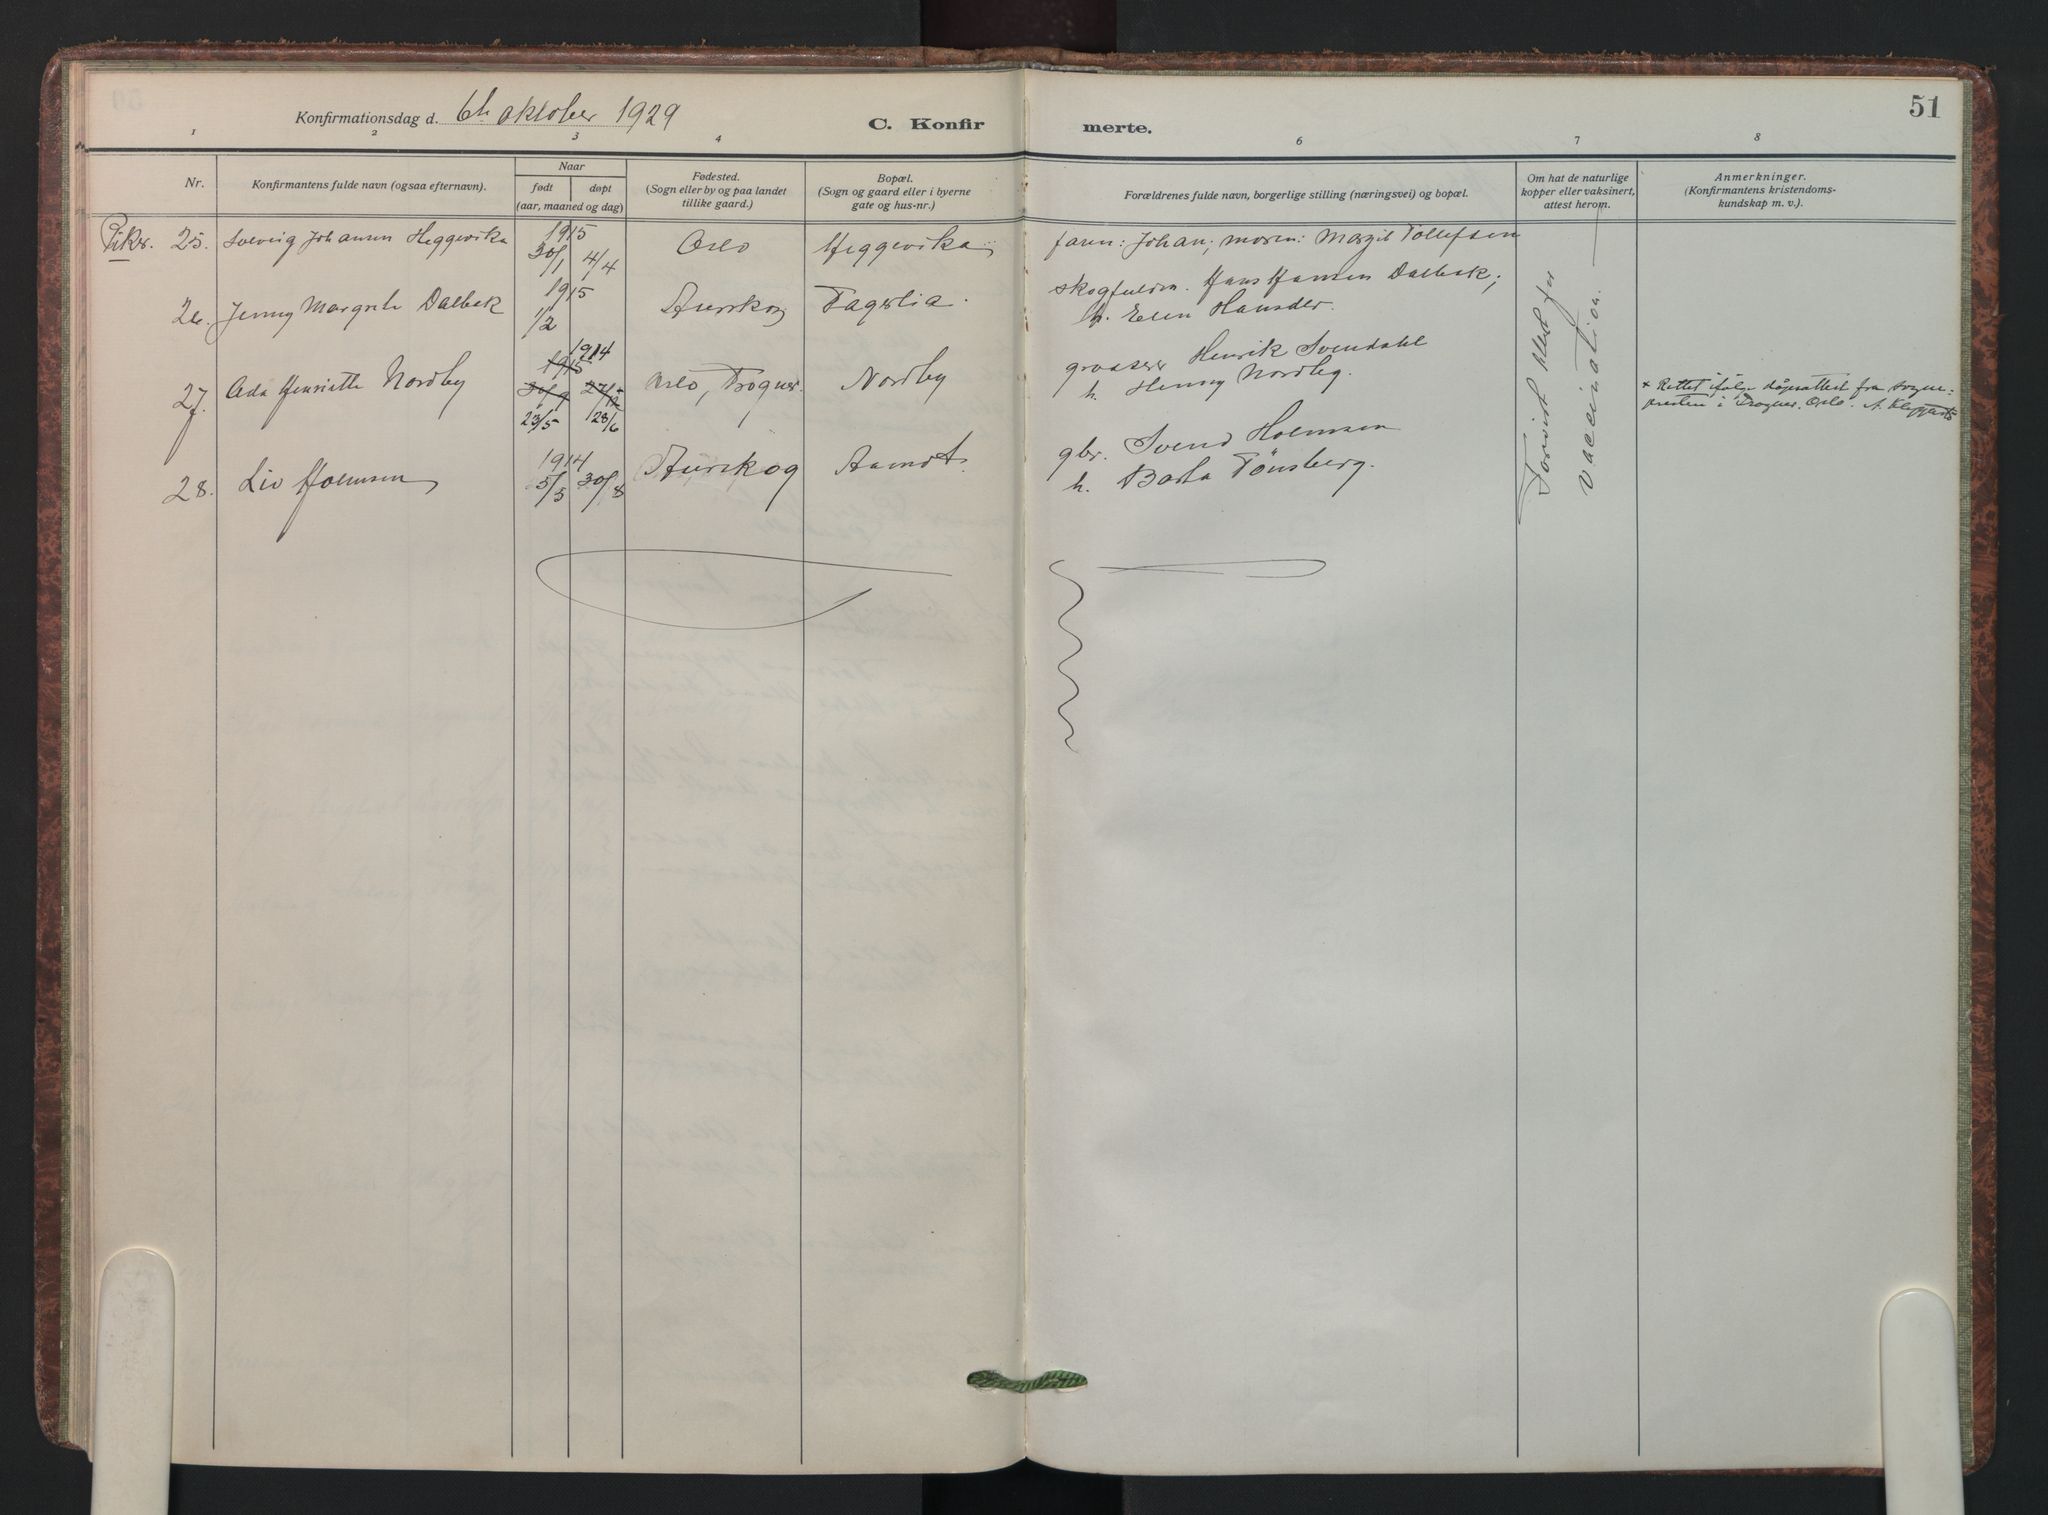 Konfirmationsdag d. 6te oktober 1929
C. Konfirmerte.
51
1 2 3 4 6 7 8
Nr.
Konfirmantens fulde navn (ogsaa efternavn).
Naar
født døpt
(aar, maaned og dag)
Fødested.
(Sogn eller by og paa landet
tillike gaard.)
Bopæl.
(Sogn og gaard eller i byerne
gate og hus-nr.)
Forældrenes fulde navn, borgerlige stilling (næringsvei) og bopæl.
Om hat de naturlige
kopper eller vaksinert,
attest herom.
Anmerkninger.
(Konfirmantens kristendoms-
kundskap m. v.).
Piker. 25. Solveig Johansen Heggevika 1915 30/1 4/4 Oslo Heggevika
faren: Johan; moren: Margit Tollefsen
26. Jenny Margrete Dalbak 1915 1/2 Aurskog Fagerlia.
Hans Hansen Dalbak;
h. Elen Hansdtr.
27. Ada Henriette Nordby 1914 1915 30/9 27/12 23/5 28/6 Oslo, Frogner. Nordby
grosserer Henrik Svendahl
h. Henny Nordby.
+ Rettet ifølge døpsattest fra sogne-
presten i Frogner. Oslo. A.
28. Liv Holmsen 1914 5/5 30/8 Aurskog Aamot
gbr. Svend Holmsen
h. Tønsberg.
Forevist attest for
vaccination.